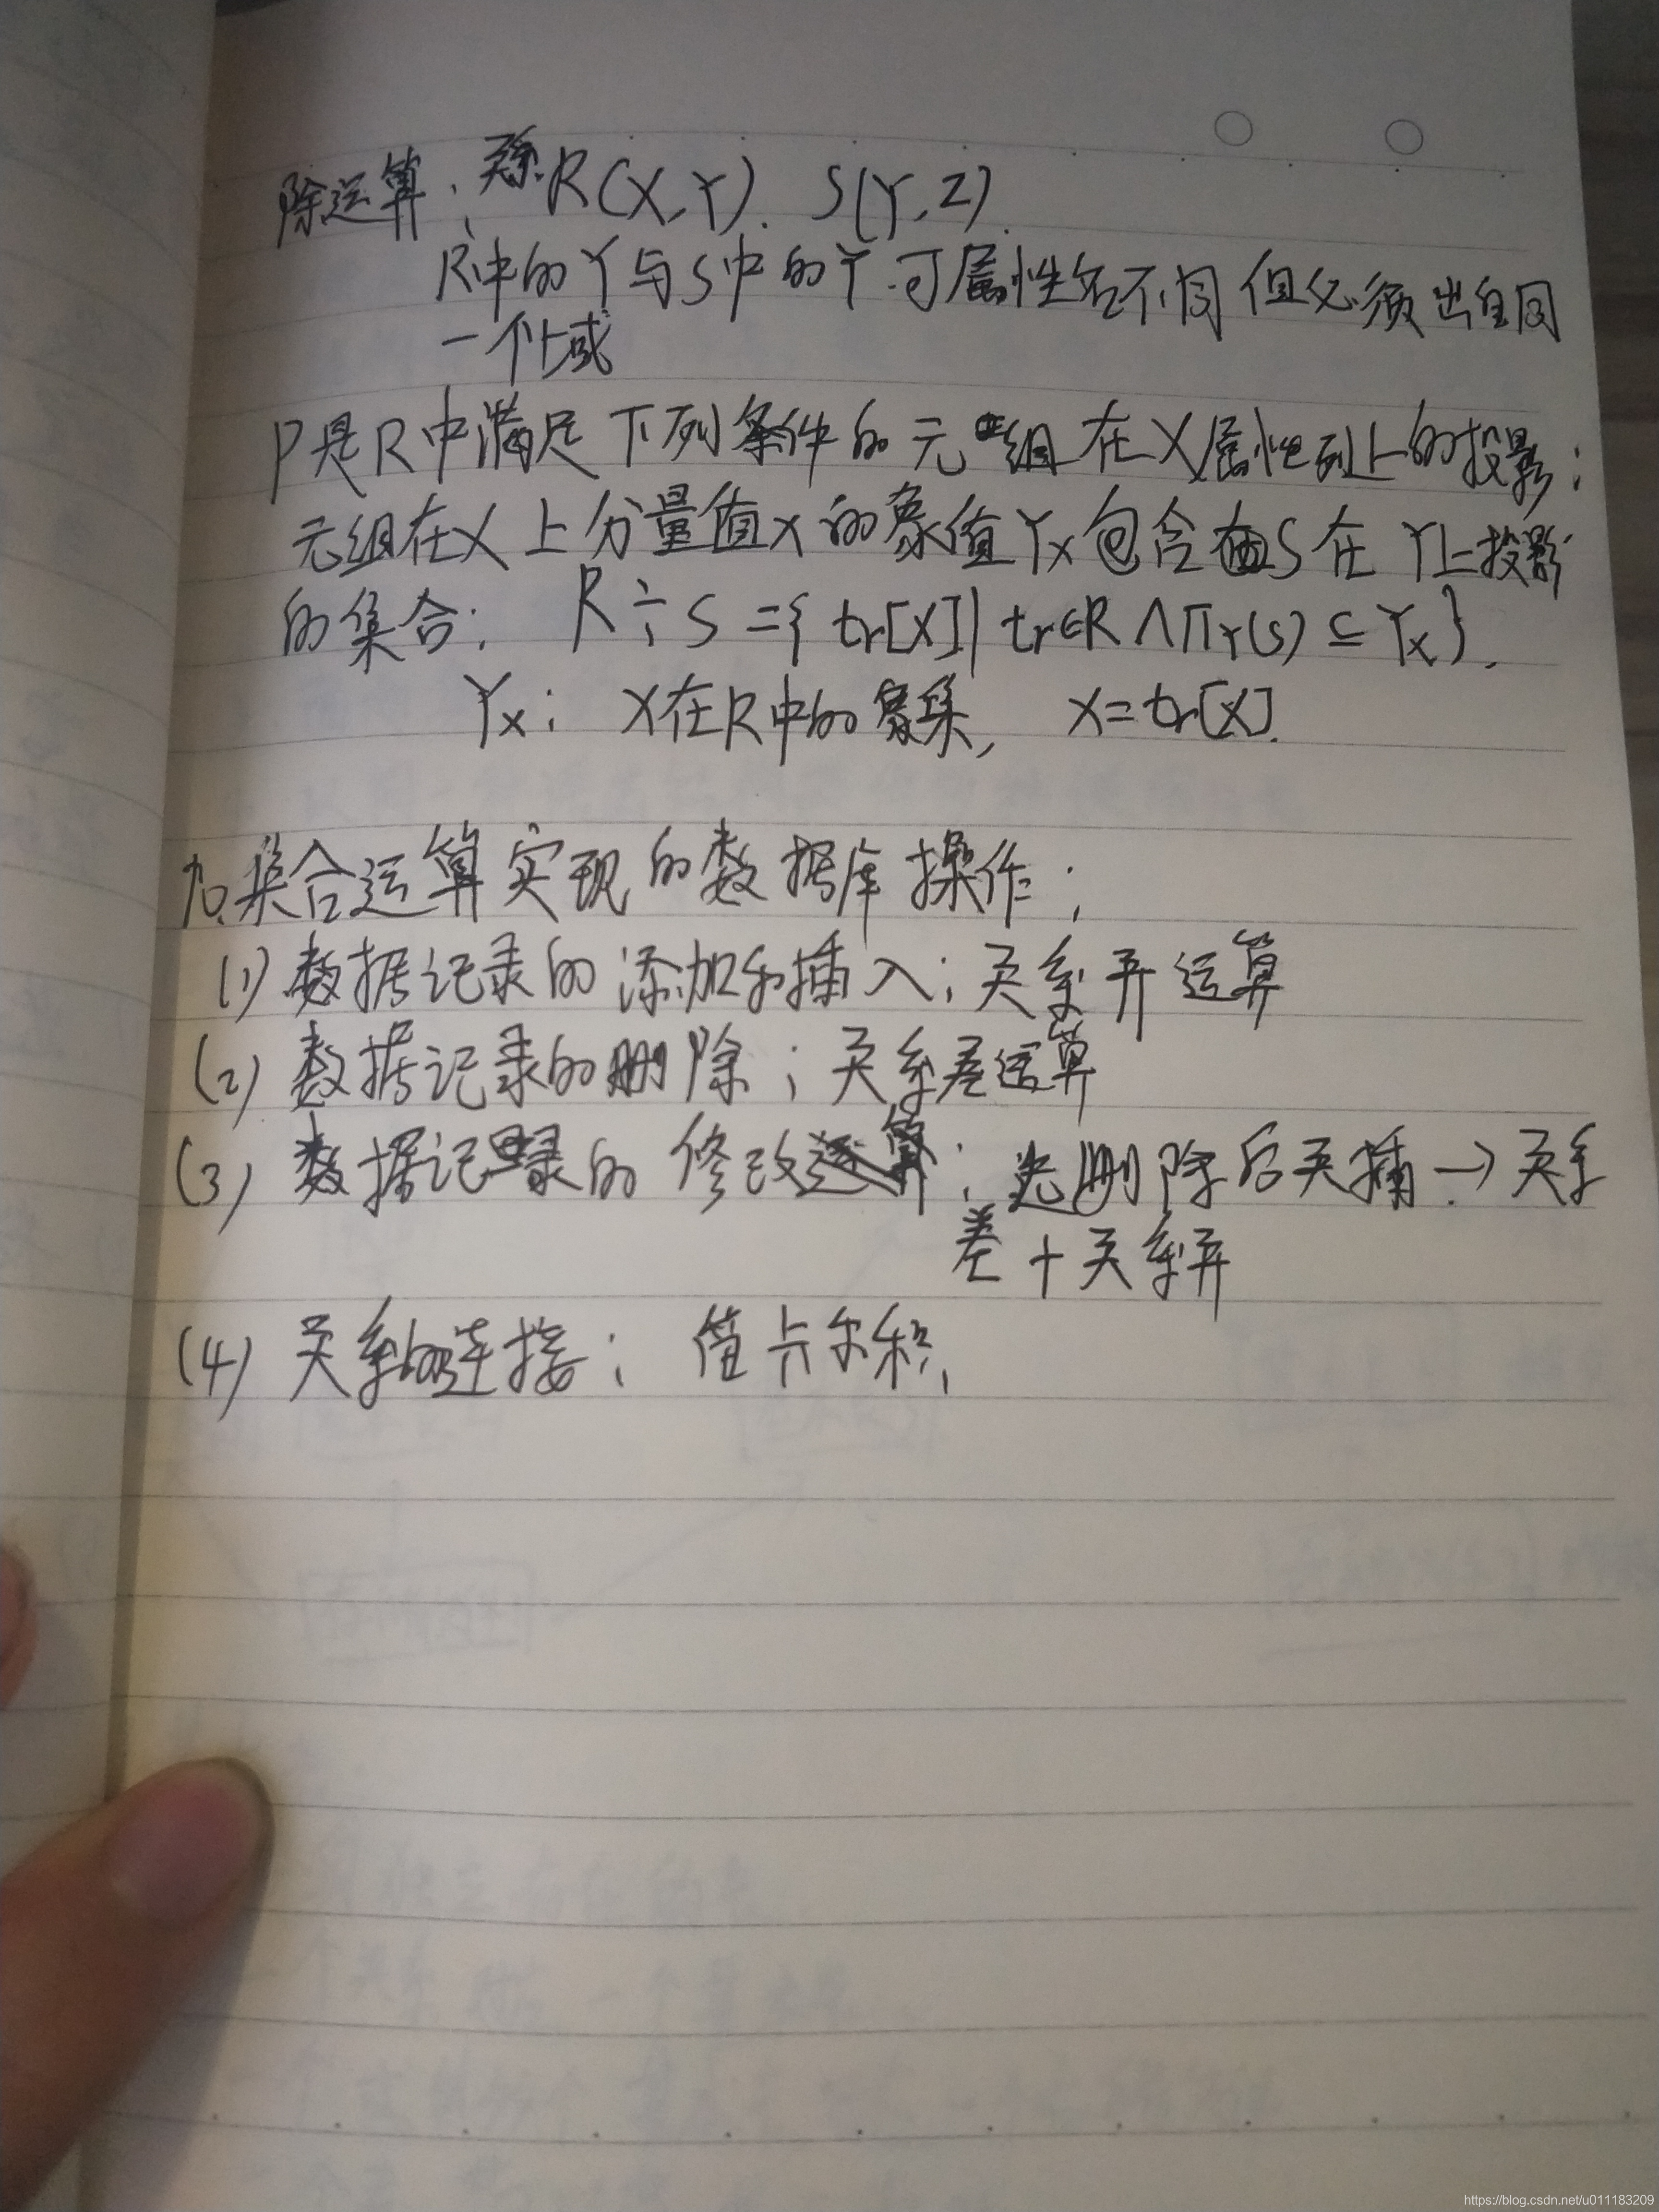 除运算：关系R(X,Y). S(Y,Z).
R中的Y与S中的Y可属性名不同但必须出自同
一个域
P是R中满足下列条件的元组在X属性列上的投影：
元组在X上分量值x的象值Yx包含S在Y上投影
的集合： R÷S={tr[X]|tr∈R∧ΠY(S)⊆Yx}.
Yx： x在R中的象集， x=tr[X].
九.集合运算实现的数据库操作：
(1) 数据记录的添加和插入：关系并运算
(2) 数据记录的删除：关系差运算
(3) 数据记录的修改运算：先删除后插→关系
差+关系并
(4) 关系的连接： 笛卡尔积.
https://blog.csdn.net/u011183209